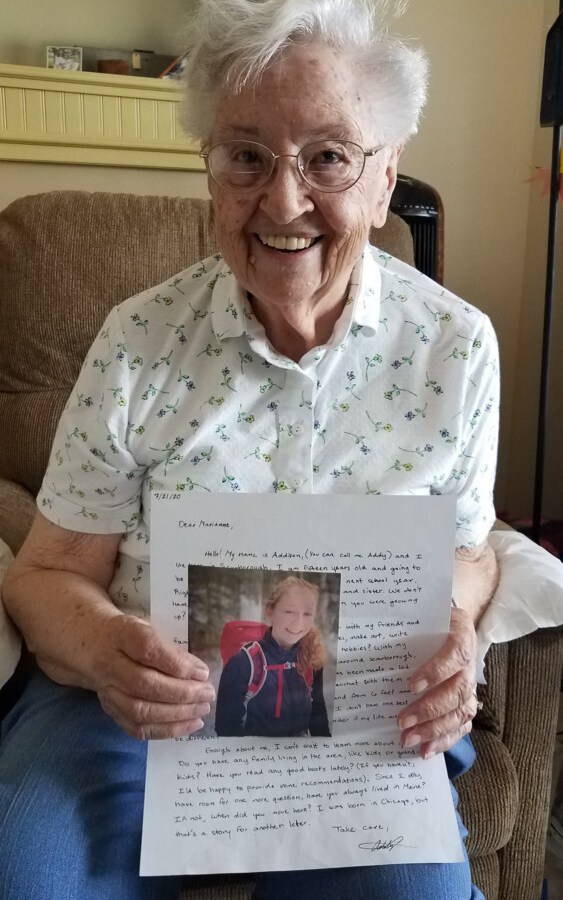 7/21/20
Dear Marianne,
Hello! My name is Addison, (you can call me Addy) and I
in Scarborough. I am fifteen years old and going to
be next school year.
and sister. We don't
have n you were growing
up?
with my friends and
make art, write
hobbies? With my
around Scarborough,
s been made a lot
with them
and from 6 feet
I don't own one
if my life
be different
Enough about me, I can't wait to learn more about
Do you have any family living in the area, like kids or grand-
kids? Have you read any good books lately? (If you haven't,
I'd be happy to provide some recommendations). Since I only
have room for one more question, have you always lived in Maine?
If not, when did you move here? I was born in Chicago, but
that's a story for another letter.
Take care,
Addy